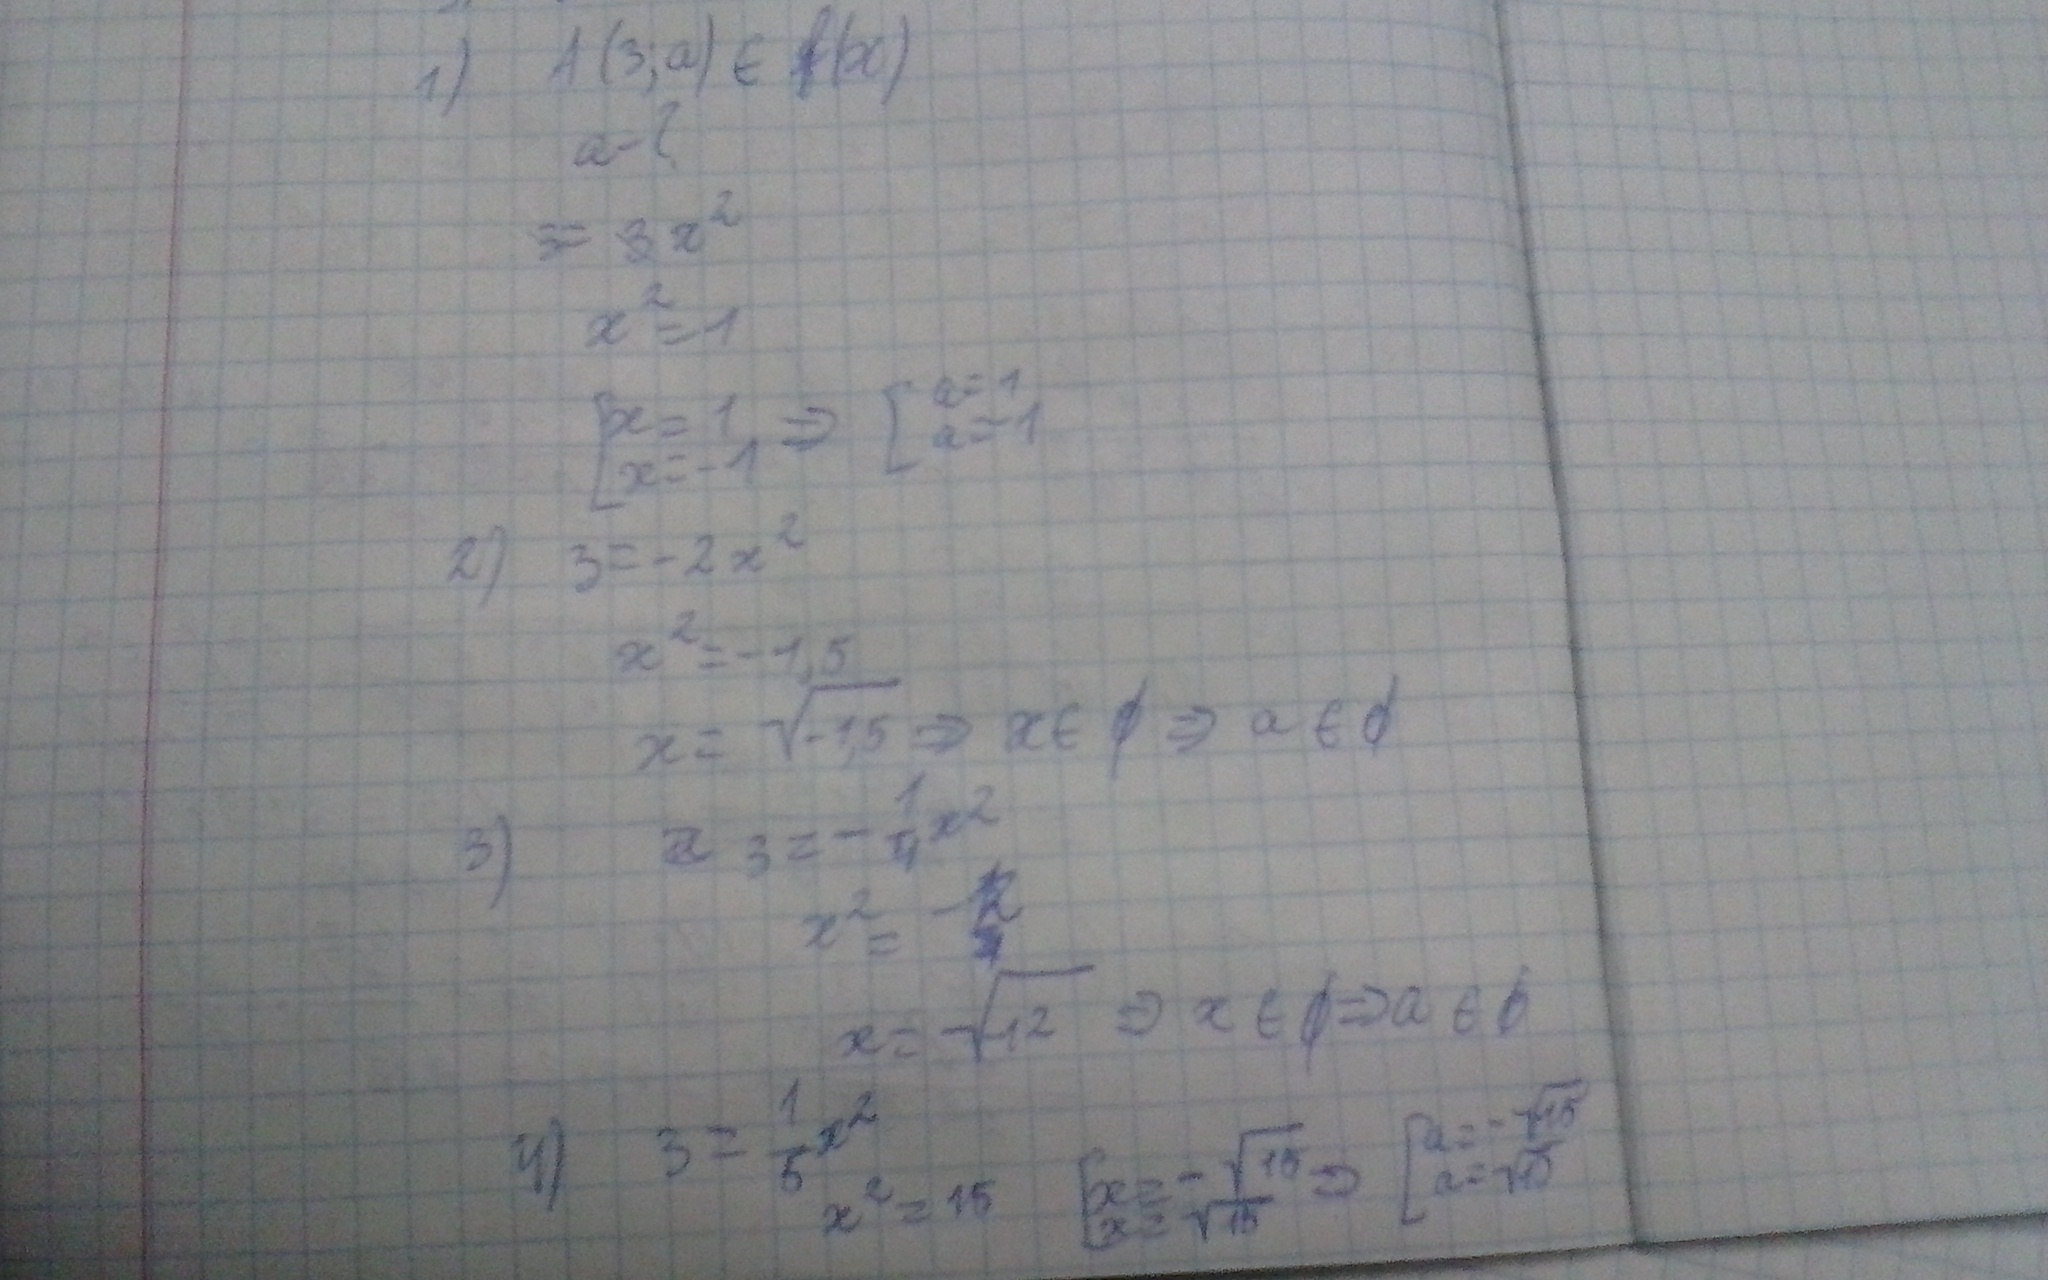 1) A(3; a) ∈ f(x)
a-?
3 = 3x²
x² = 1
[x = 1 x = -1 ⇒ [a = 1 a = -1
2) 3 = -2x²
x² = -1,5
x = √-1,5 ⇒ x ∈ ∅ ⇒ a ∈ ∅
3) 3 = -1/4 x²
x² = -12
x = √-12 ⇒ x ∈ ∅ ⇒ a ∈ ∅
4) 3 = 1/5 x²
x² = 15 [x = -√15 x = √15 ⇒ [a = -√15 a = √15